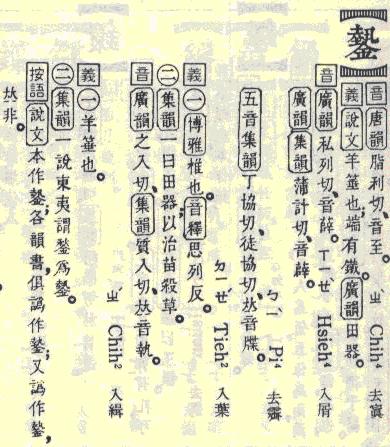 音 唐韻 脂利切,音至。 ㄓˋ Chih⁴ 去寘
義 說文 羊箠也,端有鐵。 廣韻 田器。
音 廣韻 私列切,音薛。 ㄒㄧㄝˋ Hsieh⁴ 入屑
廣韻 集韻 蒲計切,音薜。 ㄅㄧˋ Pi⁴ 去霽
五音集韻 丁協切,徒協切,𠀤音牒。 ㄉㄧㄝˊ Tieh² 入葉
義 ㊀ 博雅 椎也。 音釋 思列反。
㊁ 集韻 一曰田器,以治苗殺草。
音 廣韻 之入切, 集韻 質入切,𠀤音執。 ㄓˊ Chih² 入緝
義 ㊀羊箠也。
㊁ 集韻 一說東夷謂 爲
按語 說文 本作 各韻書俱譌作 又譌作
𠀤非。